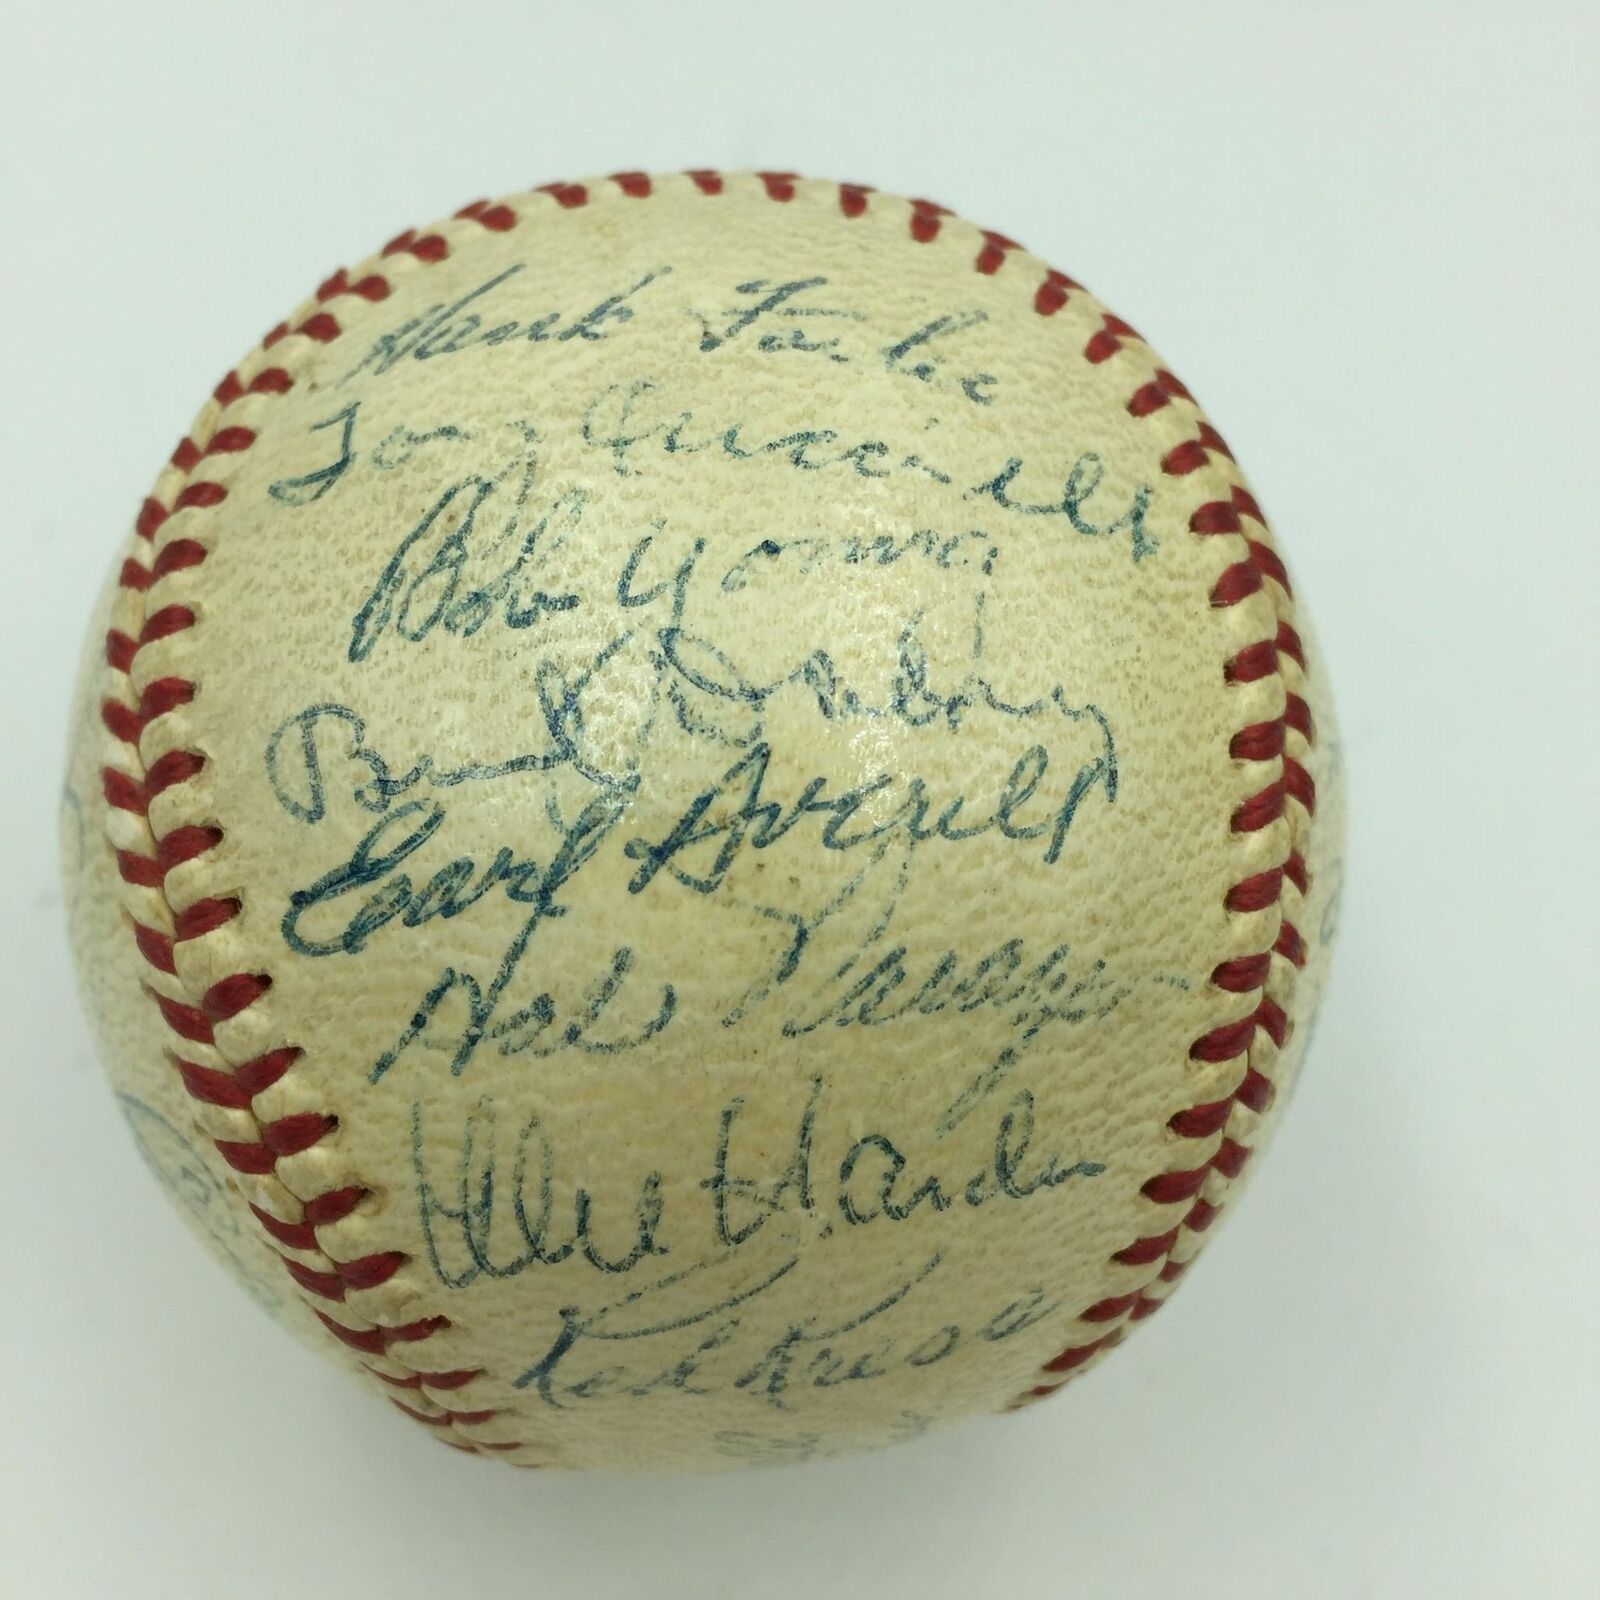 Hank Foiles
Tony Cuccinello
Bob Young
Earl Averill
Hal Naragon
Mel Harder
Red Kress